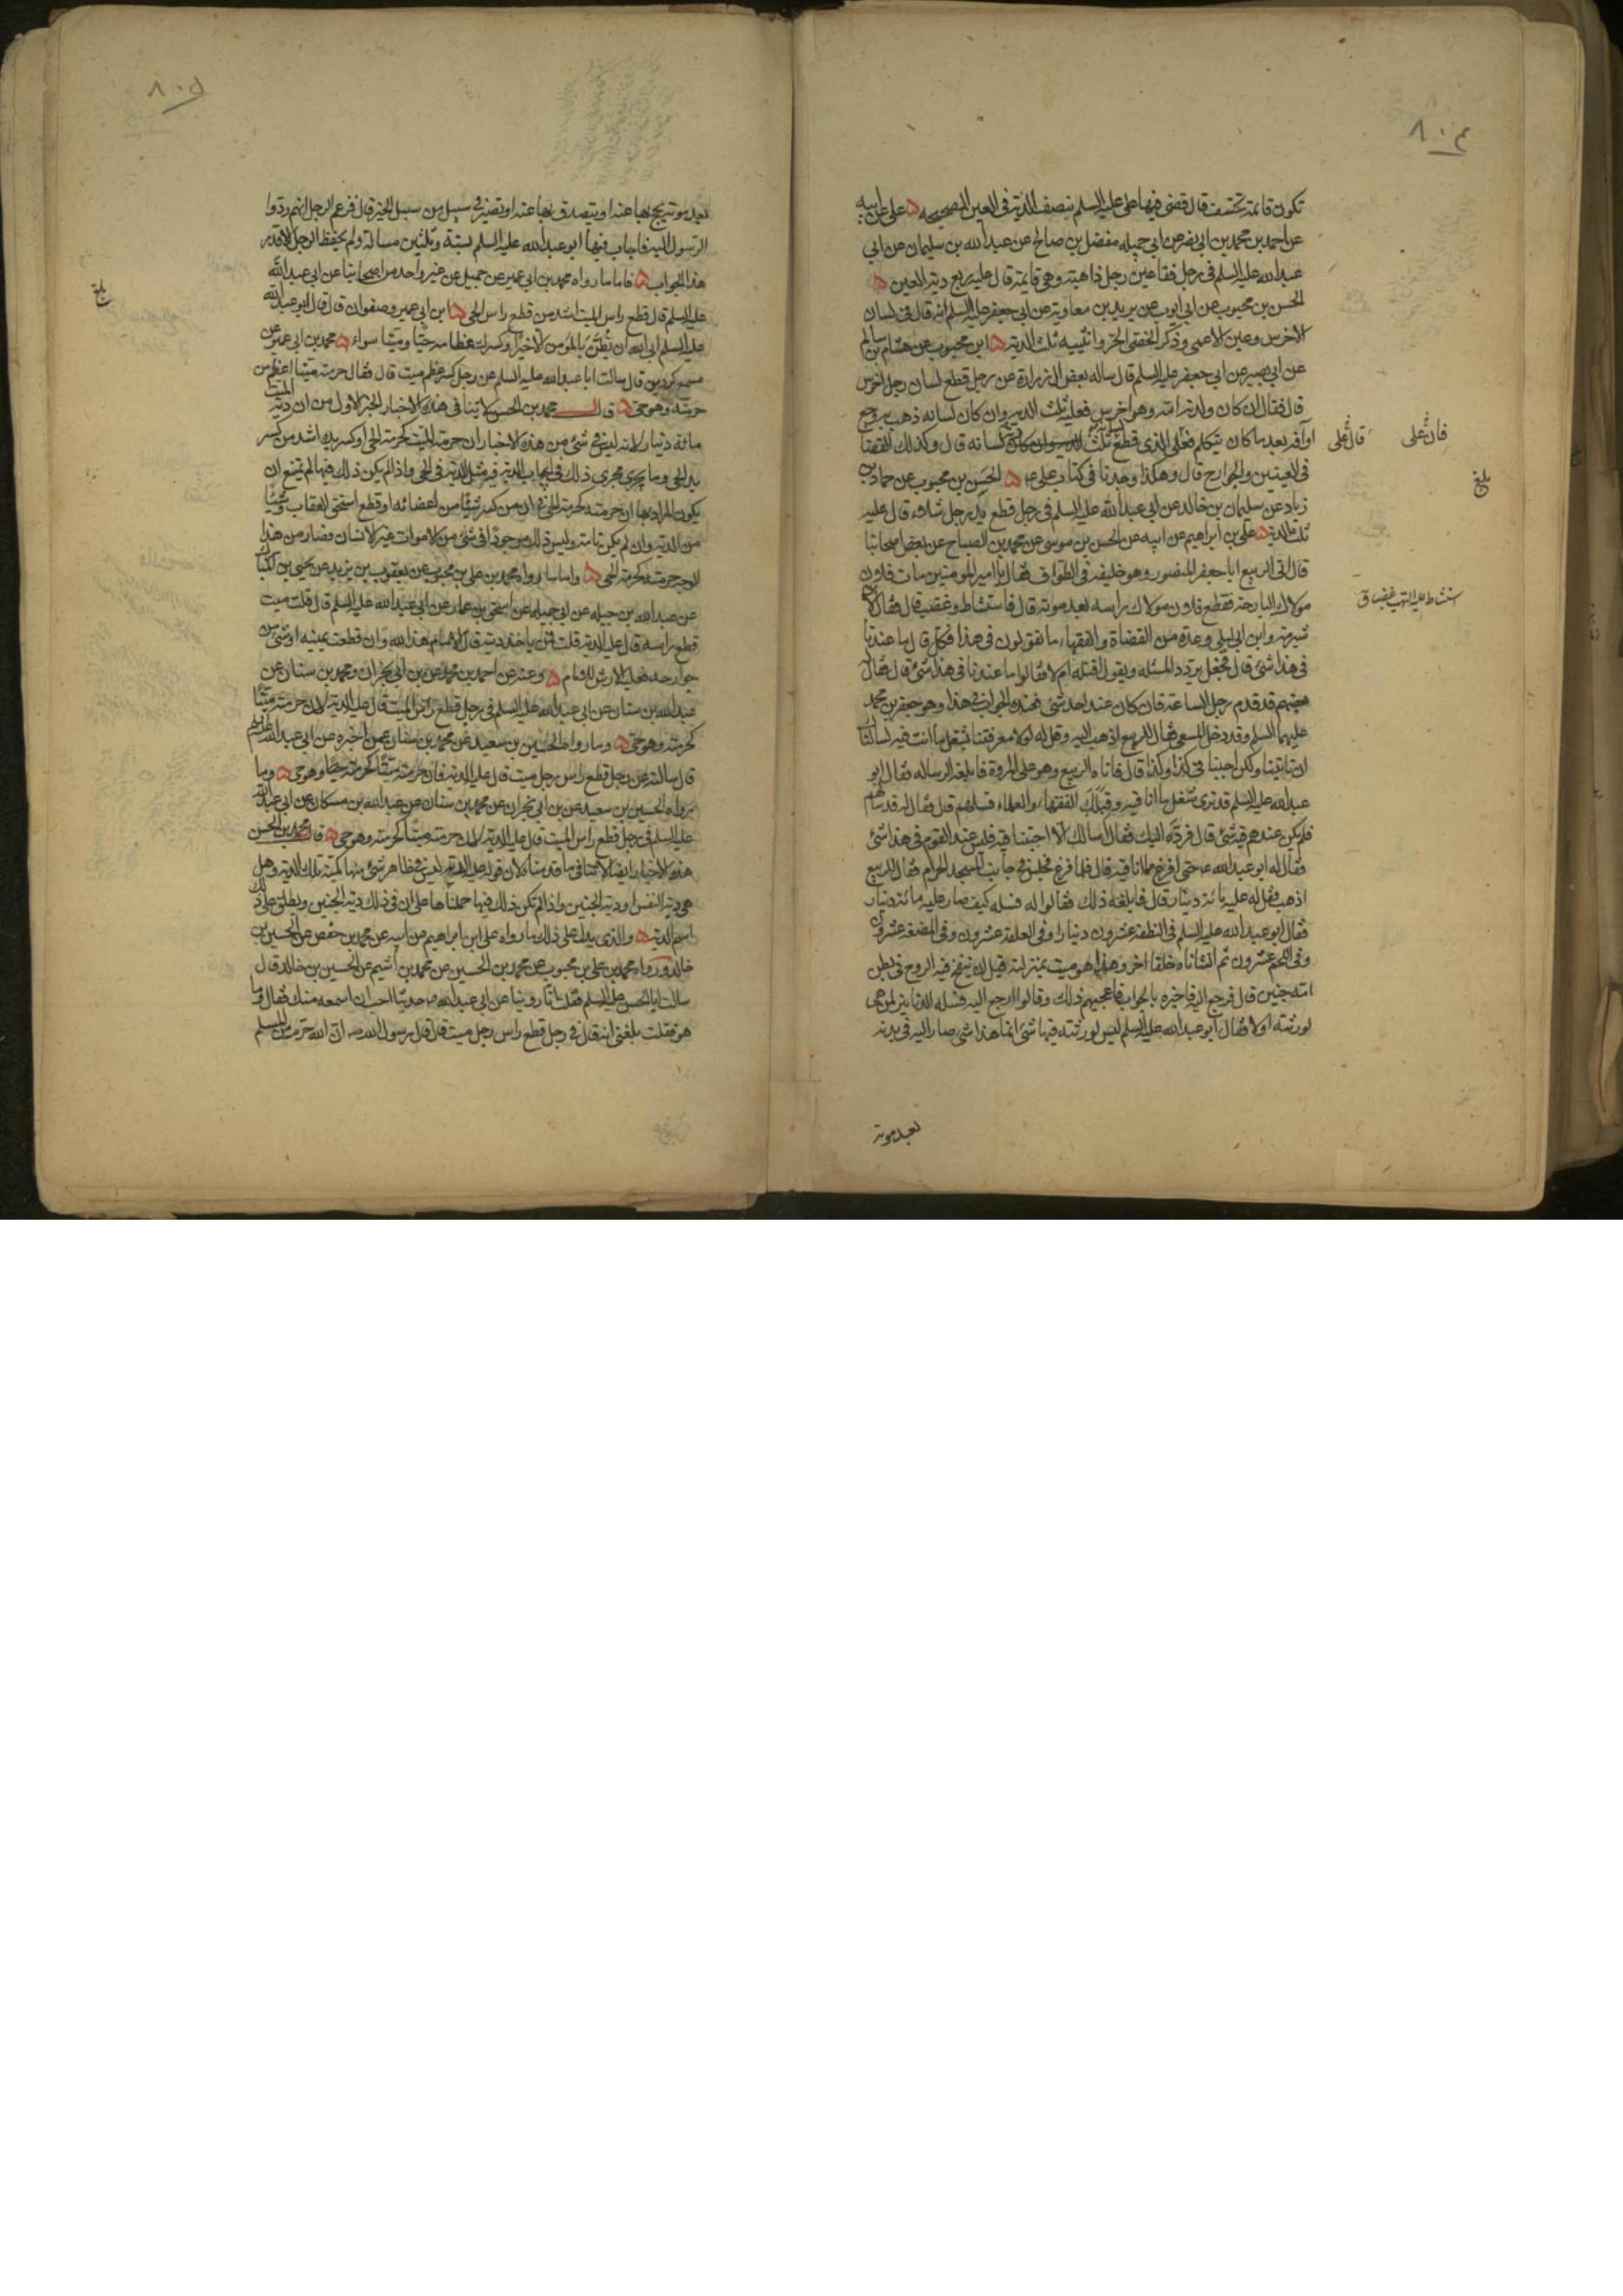 ٨٠٤
تكون قائمة تخسف قال قضى فيها على عليه السلم نصف الدية في العين الصحيحه ٥ على عن ابيه
عن احمد بن محمد بن ابى نصر عن ابي جميله مفضل بن صالح عن عبد الله بن سليمان عن ابي
عبد الله عليه السلم في رجل فقأ عين رجل ذاهبة وهى قايمة قال عليه ربع دية العين ٥
الحسن بن محبوب عن ابى ايوب عن بريد بن معاوية عن ابي جعفر عليه السلم انه قال في لسان
الاخرس وعين الاعمى وذكر الخصى الحر وانثييه ثلث الدية ٥ ابن محبوب عن هشام بن سالم
عن ابي بصير عن ابي جعفر عليه السلم قال ساله بعض ال زرارة عن رجل قطع لسان رجل اخرس
قال فقال ان كان ولدته امه وهو اخرس فعليه ثلث الدية وان كان لسانه ذهب بوجع
او آفة بعد ما كان يتكلم فعلى الذى قطع ثلث لسانه قال وكذلك القضا
قال على
فان على
في العينين والجوارح قال وهكذا وجدنا في كتاب على ع ٥ الحسن بن محبوب عن حماد بن
بلغ
زياد عن سليمان بن خالد عن ابي عبد الله عليه السلم في رجل قطع يد رجل شلاء قال عليه
ثلث الدية ٥ على بن ابراهيم عن ابيه عن الحسن بن موسى عن محمد بن الصباح عن بعض اصحابنا
قال اتى الربيع ابا جعفر المنصور وهو خليفه في الطواف فقال يا امير المومنين مات فلان
مولاك البارحة فقطع فلان مولاك راسه بعد موته قال فاستشاط وغضب قال فقال لابن
استشاط عليه التهب غضبا ق
شبرمة وابن ابي ليلى وعدة من القضاة والفقهاء ما تقولون في هذا فكل قال ما عندنا
في هذا شئ قال فجعل يردد المسئله ويقول اقتله ام لا فقالوا ما عندنا في هذا شئ قال فقال
بعضهم قد قدم رجل الساعة فان كان عند احد شئ فعنده الجواب في هذا وهو جعفر بن محمد
عليهما السلم وقد دخل المسعى فقال للربيع اذهب اليه وقل له لولا معرفتنا بشغل ما انت فيه لسالناك
ان تاتينا ولكن اجبنا في كذا وكذا قال فاتاه الربيع وهو على المروة فابلغه الرساله فقال ابو
عبد الله عليه السلم قد ترى شغل ما انا فيه وقبلك الفقهاء والعلماء فسلهم قال فقال له قد سالهم
فلم يكن عندهم فيه شئ قال فرده اليه فقال اسالك الا اجبتنا فيه فليس عند القوم في هذا شئ
فقال له ابو عبد الله ع حتى افرغ مما انا فيه قال فلما فرغ فجلس في جانب المسجد الحرام فقال للربيع
اذهب فقل له عليه مائة دينار قال فابلغه ذلك فقالوا له فسله كيف صار عليه مائة دينار
فقال ابو عبد الله عليه السلم في النطفة عشرون دينارا وفي العلقة عشرون وفي المضغه عشرون
وفي اللحم عشرون ثم انشاناه خلقا اخر وهذا هو ميت بمنزلته قبل ان ينفخ فيه الروح في بطن
امه جنين قال فرجع اليه فاخبره بالجواب فاعجبهم ذلك وقالوا ارجع اليه فسله الدنانير لمن هى
لورثته او لا فقال ابو عبد الله عليه السلم ليس لورثته فيها شئ انما هذا شئ صار اليه في بدنه
بعد موته
٨٠٥
بعد موته يحج بها عنه او يتصدق بها عنه او تصير في سبيل من سبل الخير قال فزعم الرجل انهم ردوا
الرسول اليه فاجاب فيها ابو عبد الله عليه السلم بستة وثلثين مسالة ولم يحفظ الرجل الا قدر
هذا الجواب ٥ فاما ما رواه محمد بن ابي عمير عن جميل عن غير واحد من اصحابنا عن ابي عبد الله
بلغ
عليه السلم قال قطع راس الميت اشد من قطع راس الحى ٥ ابن ابى عمير وصفوان قال قال ابو عبد الله
عليه السلم ابى الله ان تظن بالمؤمن الا خيرا وكسرك عظامه حيا وميتا سواء ٥ محمد بن ابي عمير عن
مسمع كردين قال سالت ابا عبد الله عليه السلم عن رجل كسر عظم ميت قال فقال حرمته ميتا اعظم من
حرمته وهو حى ٥ قال محمد بن الحسن لا تنافى هذه الاخبار الخبر الاول من ان دية الميت
مائة دينار لانه ليس في شئ من هذه الاخبار ان حرمة الميت كحرمة الحى او كسر يده اشد من كسر
يد الحى وما يجرى مجرى ذلك في ايجاب الدية فيه مثل الدية في الحى واذا لم يكن ذلك فيها لم يمتنع ان
يكون المراد بها ان حرمته كحرمة الحى في ان من كسر شيئا من اعضائه او قطع استحق العقاب وشيئا
من الدية وان لم يكن تامة وليس ذلك موجودا في شئ من الاموات غير الانسان فصار من هذا
الوجه حرمته كحرمة الحى ٥ واما ما رواه محمد بن على بن محبوب عن يعقوب بن يزيد عن يحيى بن المبارك
عن عبد الله بن جبله عن ابي جميله عن اسحق بن عمار عن ابي عبد الله عليه السلم قال قلت ميت
قطع راسه قال عليه الدية قلت فمن ياخذ ديته قال الامام هذا لله وان قطعت يمينه او شئ من
جوارحه فعليه الارش للامام ٥ وعنه عن احمد بن محمد عن ابن ابي نجران ومحمد بن سنان عن
عبد الله بن سنان عن ابي عبد الله عليه السلم في رجل قطع راس الميت قال عليه الدية لان حرمته ميتا
كحرمته وهو حى ٥ وما رواه الحسين بن سعيد عن محمد بن سنان عمن اخبره عن ابي عبد الله عليه السلم
قال سالته عن رجل قطع راس رجل ميت قال عليه الدية فان حرمته ميتا كحرمته وهو حى ٥ وما
رواه الحسين بن سعيد عن ابن ابي نجران عن محمد بن سنان عن عبد الله بن مسكان عن ابي عبد الله
عليه السلم في رجل قطع راس الميت قال عليه الدية لان حرمته ميتا كحرمته وهو حى ٥ قال محمد بن الحسن
هذه الاخبار ايضا لا تنافى ما قدمناه لان قوله عليه الدية ليس في ظاهر شئ منها كمية تلك الدية وهل
هى دية النفس او دية الجنين واذا لم يكن ذلك فيها حملناها على ان في ذلك دية الجنين ويطلق على ذلك
اسم الدية ٥ والذى يدل على ذلك ما رواه على ابن ابراهيم عن ابيه عن محمد بن حفص عن الحسين بن
خالد ورواه محمد بن على بن محبوب عن محمد بن الحسين عن محمد بن اشيم عن الحسين بن خالد قال
سالت ابا الحسن عليه السلم فقلت انا روينا عن ابي عبد الله ع حديثا احب ان اسمعه منك فقال وما
هو فقلت بلغنى انه قال في رجل قطع راس رجل ميت قال قال رسول الله ص ان الله حرم من المسلم